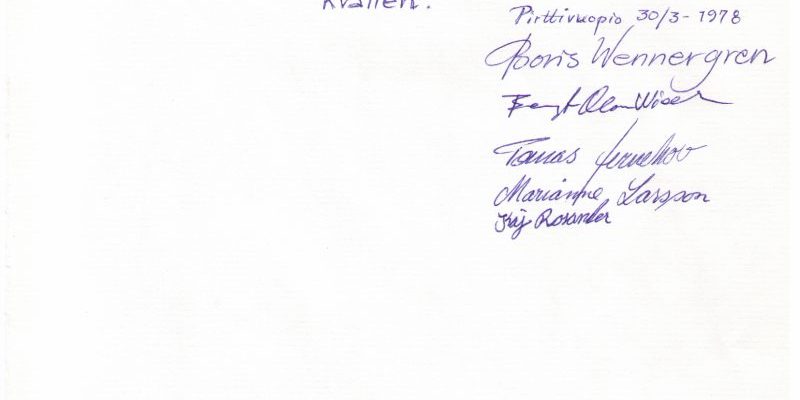 kvällen.
Pirttivuopio 30/3-1978
Boris Wennergren
Bengt Olov
Tomas
Marianne Larsson
Kaj Rosander